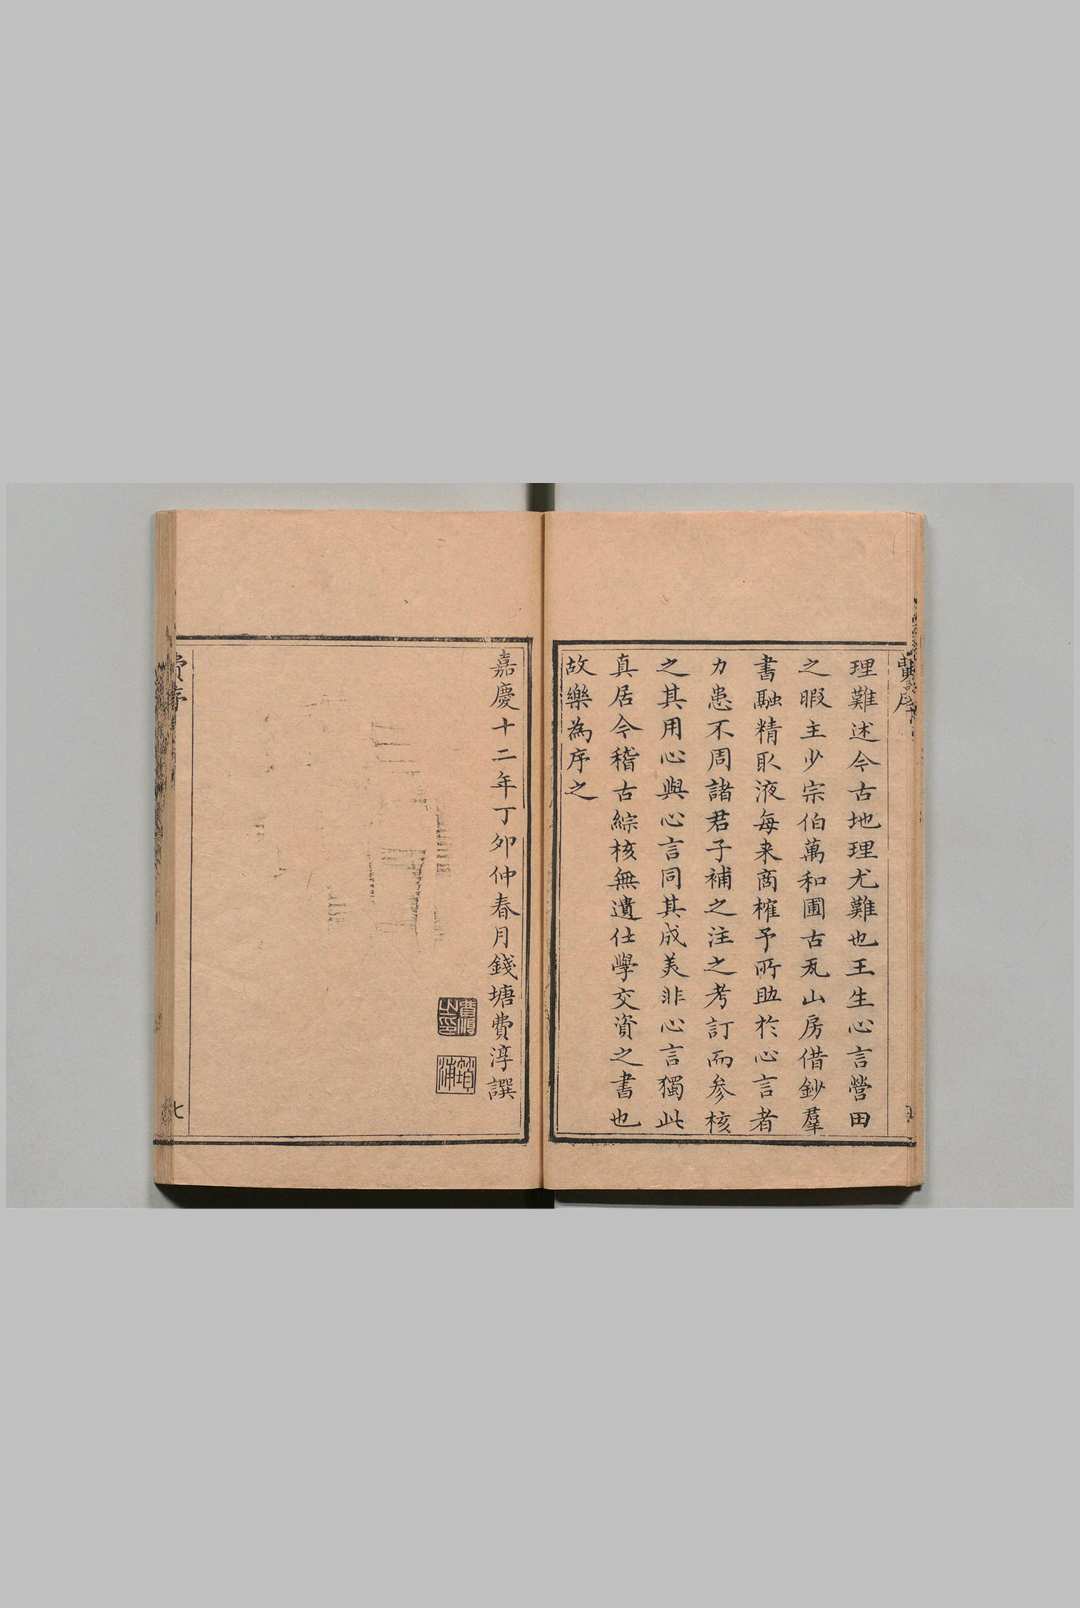 費序
理難述今古地理尤難也王生心言營田
之暇主少宗伯萬和圃古瓦山房借鈔羣
書融精取液每来商榷予所助於心言者
力患不周諸君子補之注之考訂而参核
之其用心與心言同其成美非心言獨此
真居今稽古綜核無遺仕學交資之書也
故樂為序之
嘉慶十二年丁卯仲春月錢塘費淳撰
費淳之印
筠浦
費序
七